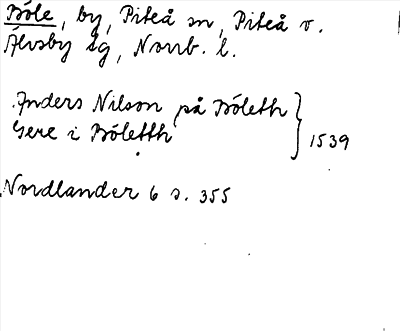 Böle, by, Piteå sn, Piteå v.
Älvsby tg, Norrb. l.
Anders Nilson på Böleth
Gere i Böletth } 1539
Nordlander 6 s. 355